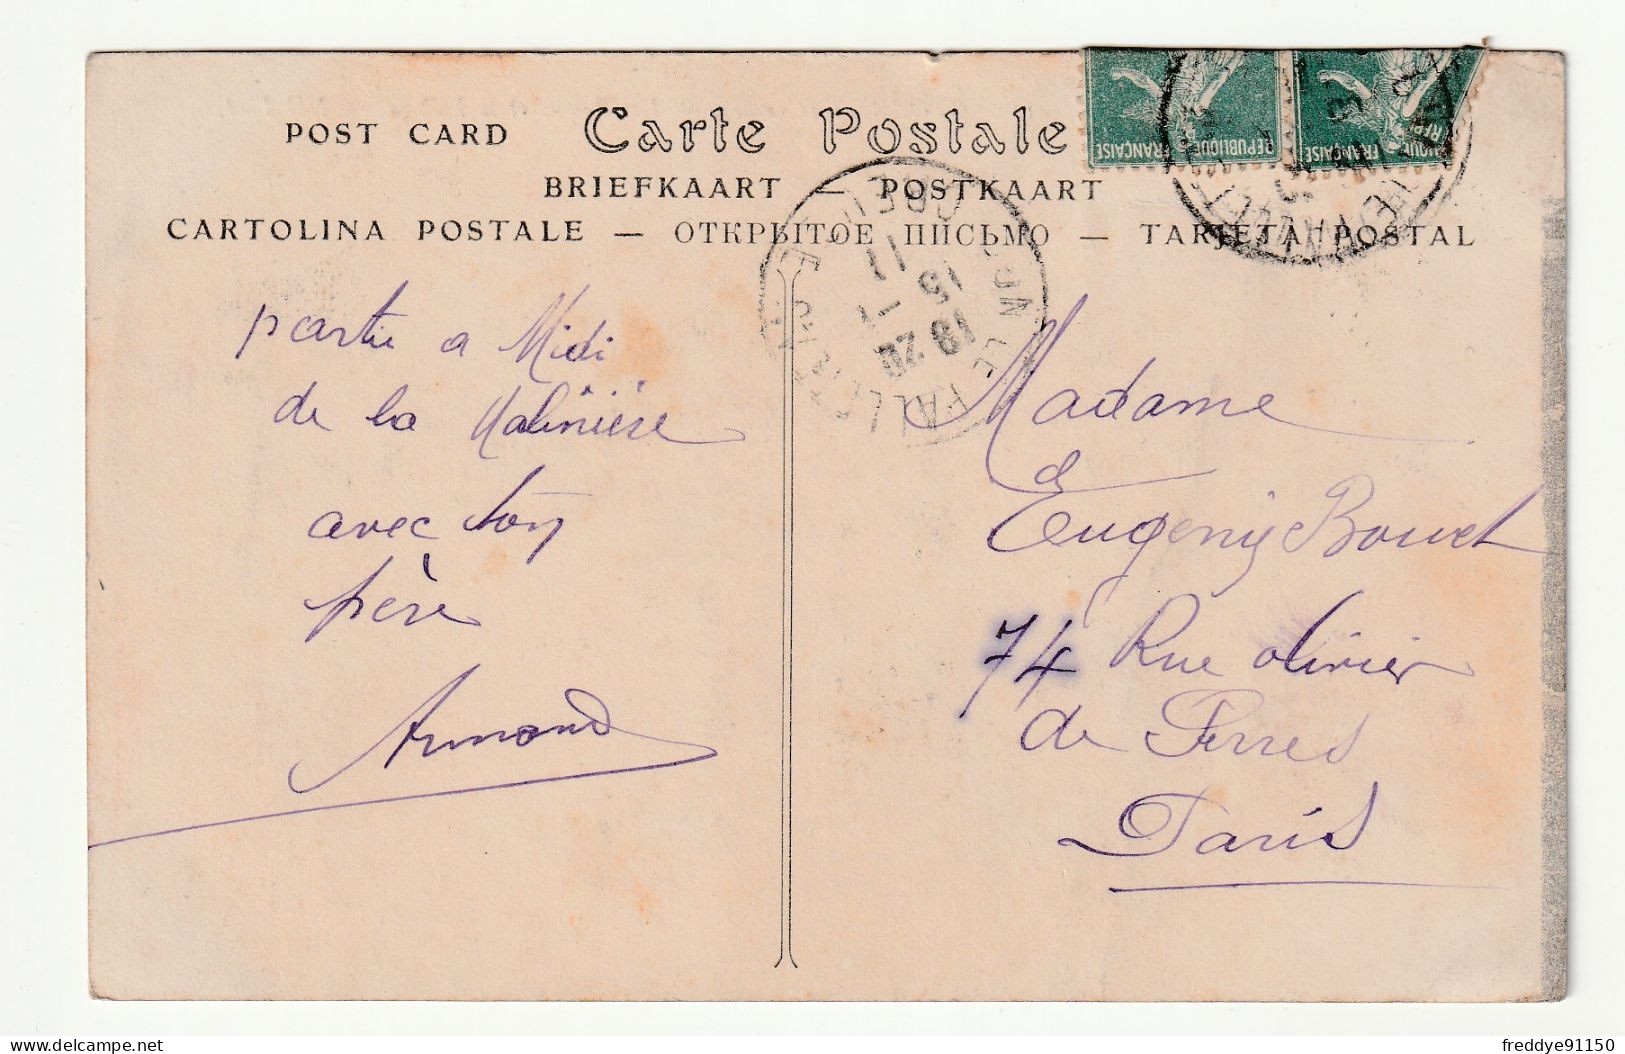 POST CARD Carte Postale
BRIEFKAART — POSTKAART
CARTOLINA POSTALE — ОТКРЫТОЕ ПИСЬМО — TARJETA POSTAL
REPUBLIQUE FRANÇAISE
FRANÇAISE
19 20
partie a Midi
de la Malinière
avec ton
père
Armand
Madame
Eugenie Bouet
74 Rue olivier
de Serres
Paris
freddye91150